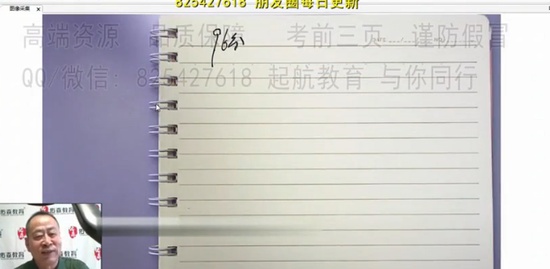 图像采集
825427618 朋友圈每日更新
高端资源 品质保障 考前三页 谨防假冒
96分
QQ/微信：825427618 起航教育 与你同行